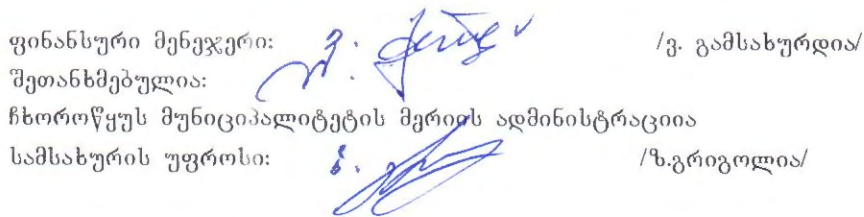 ფინანსური მენეჯერი: /ვ. გამსახურდია/
შეთანხმებულია:
ჩხოროწყუს მუნიციპალიტეტის მერიის ადმინისტრაციიია
სამსახურის უფროსი: /ზ.გრიგოლია/